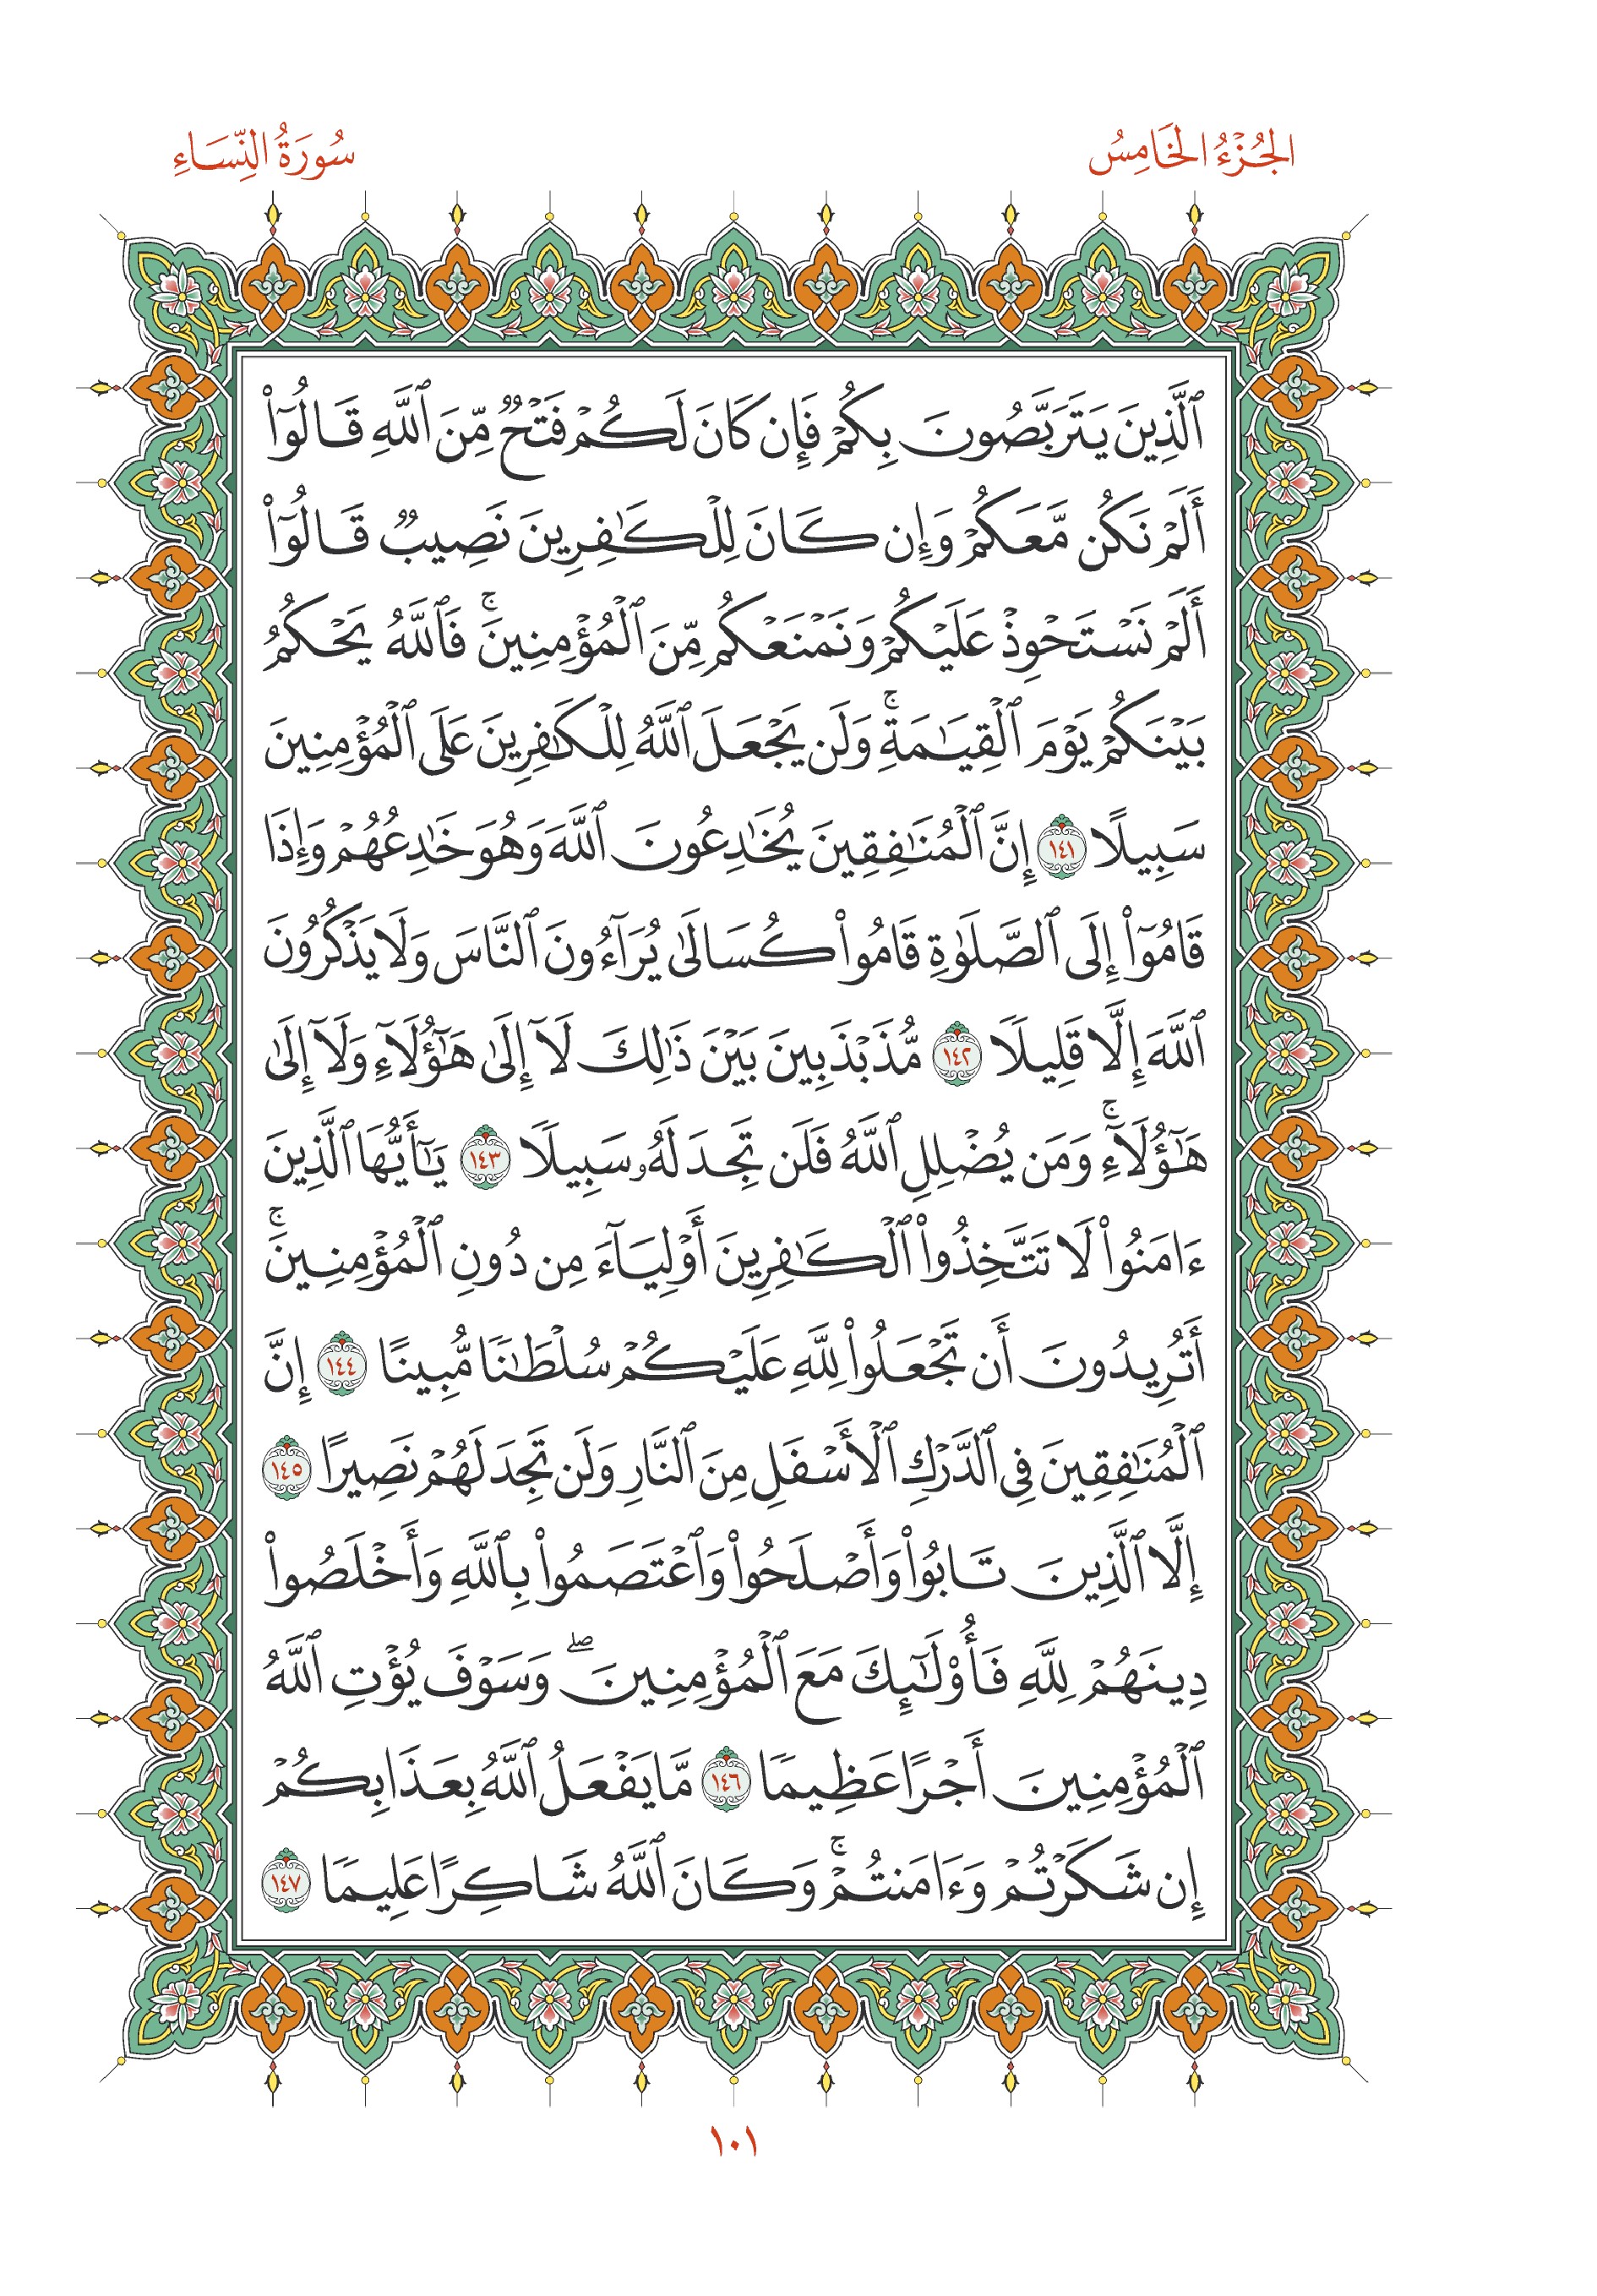 الجُزْءُ الخَامِسُ
سُورَةُ النِّسَاءِ
ٱلَّذِينَ يَتَرَبَّصُونَ بِكُمْ فَإِن كَانَ لَكُمْ فَتْحٌ مِّنَ ٱللَّهِ قَالُوٓا۟
أَلَمْ نَكُن مَّعَكُمْ وَإِن كَانَ لِلْكَٰفِرِينَ نَصِيبٌ قَالُوٓا۟
أَلَمْ نَسْتَحْوِذْ عَلَيْكُمْ وَنَمْنَعْكُم مِّنَ ٱلْمُؤْمِنِينَ ۚ فَٱللَّهُ يَحْكُمُ
بَيْنَكُمْ يَوْمَ ٱلْقِيَٰمَةِ ۚ وَلَن يَجْعَلَ ٱللَّهُ لِلْكَٰفِرِينَ عَلَى ٱلْمُؤْمِنِينَ
سَبِيلًا ١٤١ إِنَّ ٱلْمُنَٰفِقِينَ يُخَٰدِعُونَ ٱللَّهَ وَهُوَ خَٰدِعُهُمْ وَإِذَا
قَامُوٓا۟ إِلَى ٱلصَّلَوٰةِ قَامُوا۟ كُسَالَىٰ يُرَآءُونَ ٱلنَّاسَ وَلَا يَذْكُرُونَ
ٱللَّهَ إِلَّا قَلِيلًا ١٤٢ مُّذَبْذَبِينَ بَيْنَ ذَٰلِكَ لَآ إِلَىٰ هَٰٓؤُلَآءِ وَلَآ إِلَىٰ
هَٰٓؤُلَآءِ ۚ وَمَن يُضْلِلِ ٱللَّهُ فَلَن تَجِدَ لَهُۥ سَبِيلًا ١٤٣ يَٰٓأَيُّهَا ٱلَّذِينَ
ءَامَنُوا۟ لَا تَتَّخِذُوا۟ ٱلْكَٰفِرِينَ أَوْلِيَآءَ مِن دُونِ ٱلْمُؤْمِنِينَ ۚ
أَتُرِيدُونَ أَن تَجْعَلُوا۟ لِلَّهِ عَلَيْكُمْ سُلْطَٰنًا مُّبِينًا ١٤٤ إِنَّ
ٱلْمُنَٰفِقِينَ فِى ٱلدَّرْكِ ٱلْأَسْفَلِ مِنَ ٱلنَّارِ وَلَن تَجِدَ لَهُمْ نَصِيرًا ١٤٥
إِلَّا ٱلَّذِينَ تَابُوا۟ وَأَصْلَحُوا۟ وَٱعْتَصَمُوا۟ بِٱللَّهِ وَأَخْلَصُوا۟
دِينَهُمْ لِلَّهِ فَأُو۟لَٰٓئِكَ مَعَ ٱلْمُؤْمِنِينَ ۖ وَسَوْفَ يُؤْتِ ٱللَّهُ
ٱلْمُؤْمِنِينَ أَجْرًا عَظِيمًا ١٤٦ مَّا يَفْعَلُ ٱللَّهُ بِعَذَابِكُمْ
إِن شَكَرْتُمْ وَءَامَنتُمْ ۚ وَكَانَ ٱللَّهُ شَاكِرًا عَلِيمًا ١٤٧
١٠١